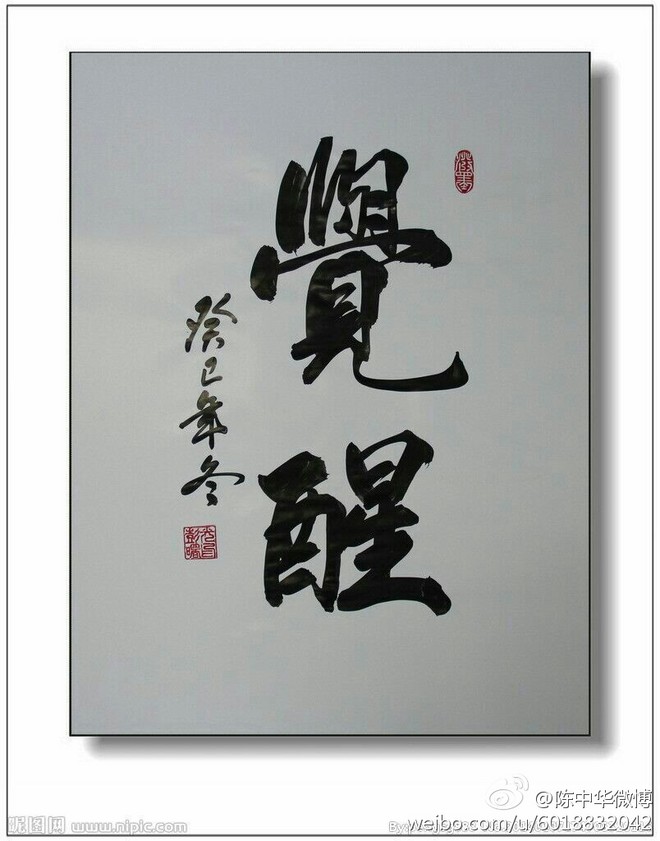 覺醒
癸巳年冬
@陈中华微博
weibo.com/u/6018832042
昵图网 www.nipic.com